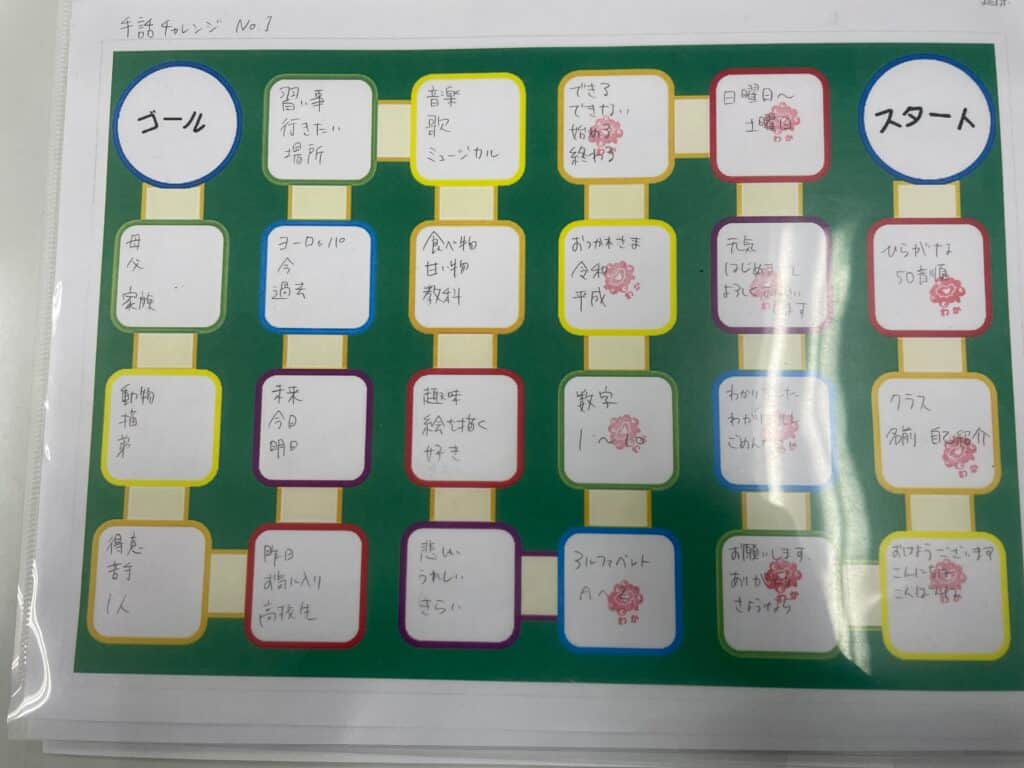 手話チャレンジ No.1
ゴール
習い事
行きたい
場所
音楽
歌
ミュージカル
できる
できない
始める
終わる
日曜日〜
土曜日
スタート
母
父
家族
ヨーロッパ
今
過去
食べ物
甘い物
教科
おつかれさま
令和
平成
元気
はじめまして
よろしく
します
ひらがな
50音順
動物
猫
弟
未来
今日
明日
趣味
絵を描く
好き
数字
1〜10
わかりました
ごめんなさい
クラス
名前 自己紹介
得意
苦手
1人
昨日
お気に入り
高校生
悲しい
うれしい
きらい
アルファベット
A〜Z
お願いします
ありがとう
さようなら
おはようございます
こんにちは
こんばんは
わか
わか
わか
わか
わか
わか